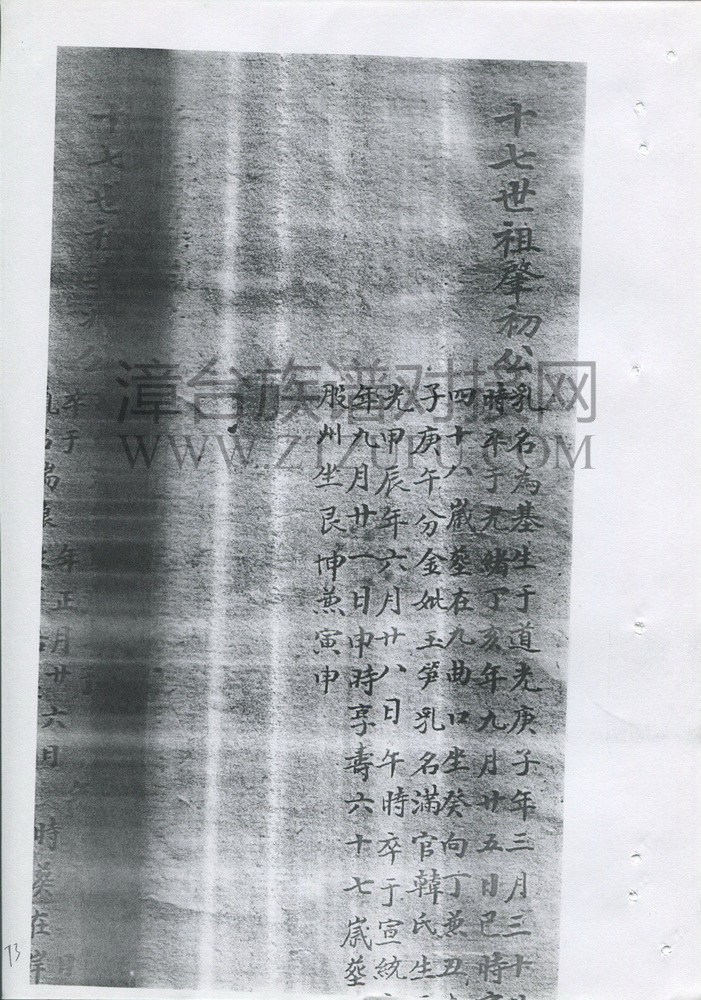 十七世祖肇初公
乳名為基生于道光庚子年三月三十
時卒于光緒丁亥年九月廿五日巳時
四十八歲塟在九曲口坐癸向丁兼丑
子庚午分金妣玉笋乳名滿官韓氏生
光甲辰年六月廿八日午時卒于宣統
年九月廿一日申時享壽六十七歲塟
服州坐艮坤兼寅申
十七世祖
年正月廿六日
時葬在
漳台族谱对接网
WWW.ZTZUPU.COM
73